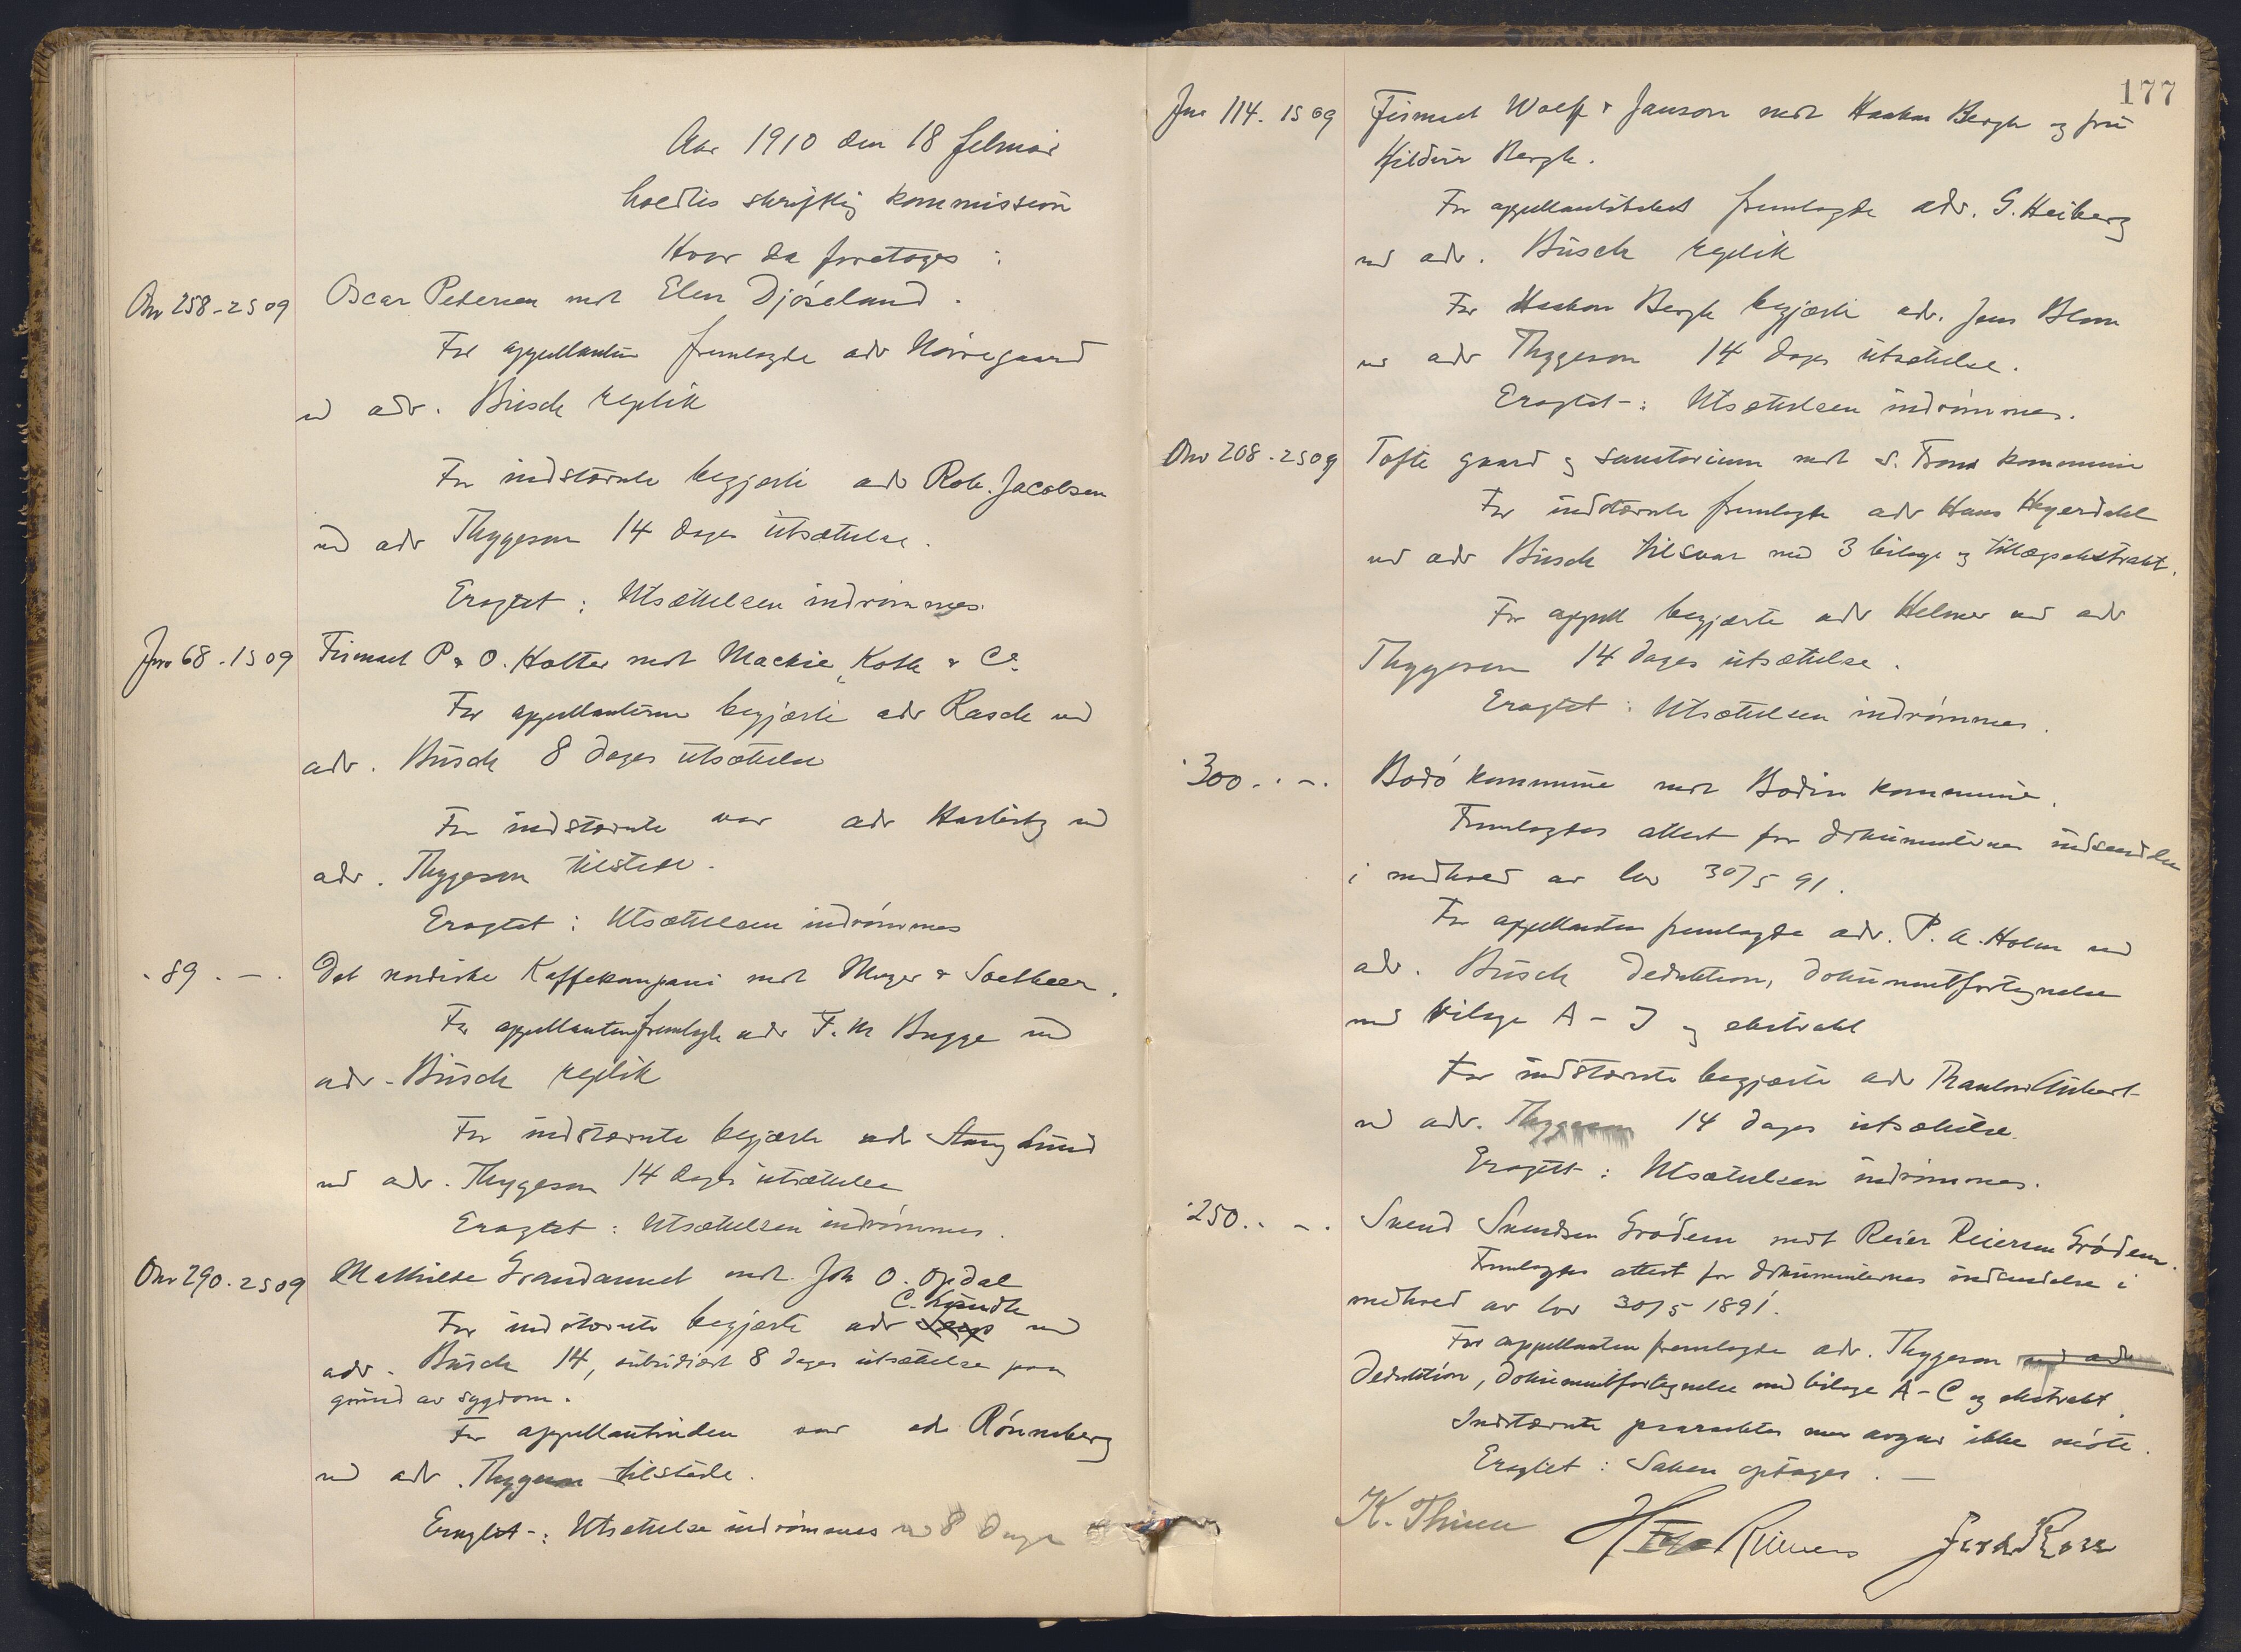 Aar 1910 den 18 februar
holdtes skriftlig kommission
Hvor da foretoges :
Onr 258 - 2 S 09 Oscar Pedersen mot Elen Djöseland.
For appellanten fremlagde adv Nörregaard
ved adv. Busch replik
For indstævnte begjærte adv Rob. Jacobsen
ved adv Thygeson 14 dages utsættelse.
Eragtet : Utsættelsen indrömmes.
Jnr 68 - 1 S 09 Firmaet P & O. Holter mot Mackie, Koth & Co.
For appellanterne begjærte adv Rasch ved
adv. Busch 8 dages utsættelse
For indstævnte var adv Harbitz ved
adv. Thygeson tilstede.
Eragtet : Utsættelsen indrömmes
" 89 . — . Det nordiske Kaffekompani mot Meyer & Soetbeer.
For appellanten fremlagde adv F. M Bugge ved
adv. Busch replik
For indstævnte begjærte adv Stang Lund
ved adv. Thygeson 14 dages utsættelse
Eragtet : Utsættelsen indrömmes.
Onr 290 - 2 S 09 Mathilde mot Joh O. Opdal
C. Lyndh
For indstævnte begjærte adv ved
adv. Busch 14, subsidiært 8 dages utsættelse paa
grund av sygdom.
For appellantinden var adv Rönneberg
ved adv. Thygeson tilstede.
Eragtet : Utsættelse indrömmes paa 8 dage
177
Jnr 114. 1 S 09 Firmaet Wolff & Janson mot Haakon Bergh og fru
Hildur Bergh.
For appellantskabet fremlagde adv. G. Heiberg
ved adv. Busch replik
For Haakon Bergh begjærte adv. Jens Blom
ved adv Thygeson 14 dages utsættelse.
Eragtet : Utsættelsen indrömmes.
Onr 208 - 2 S 09 Tofte gaard og sanatorium mot S. Fron kommune
For indstævnte fremlagde adv Hans Heyerdahl
ved adv Busch tilsvar med 3 bilage og tillægsekstrakt.
For appell begjærte adv Helmer ved adv
Thygeson 14 dages utsættelse.
Eragtet : Utsættelsen indrömmes.
" 300 . . — . Bodö kommune mot Bodin kommune.
Fremlagdes attest for dokumenternes indsendelse
i medhold av lov 30/5 91.
For appellanten fremlagde adv. P. A. Holm ved
adv. Busch deduktion, dokumentfortegnelse
med bilage A - J og ekstrakt
For indstævnte begjærte adv Thaulow Aubert
ved adv. Thygeson 14 dages utsættelse.
Eragtet : Utsættelsen indrömmes.
" 250 . . — . Svend Svendsen Grödem mot Reier Reiersen Grödem.
Fremlagdes attest for dokumenternes indsendelse i
medhold av lov 30/5 1891.
For appellanten fremlagde adv. Thygeson ved adv
deduktion, dokumentfortegnelse med bilage A - C og ekstrakt.
Indstævnte paaraabtes men avgav ikke möte.
Eragtet : Saken optages. —
K. Thinn